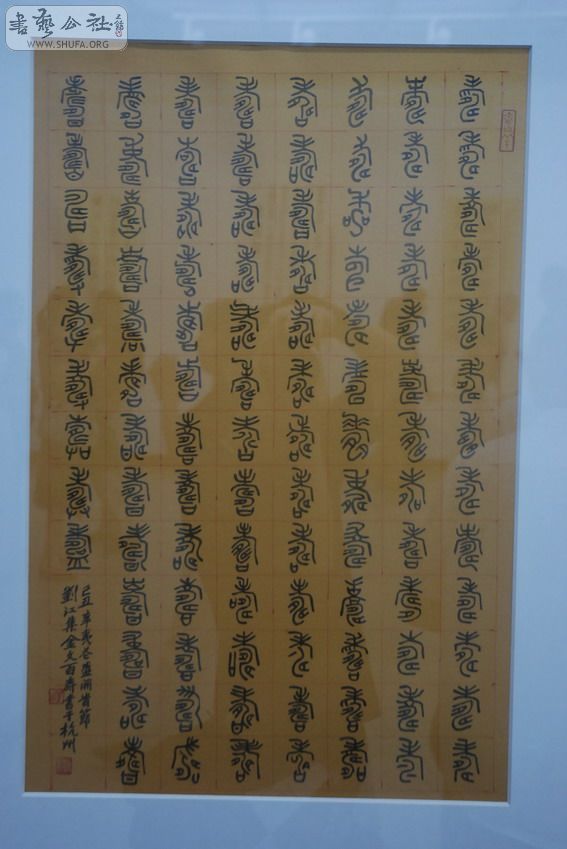 書藝公社
WWW.SHUFA.ORG
壽壽壽壽壽壽壽壽壽壽壽壽壽
壽壽壽壽壽壽壽壽壽壽壽壽壽
壽壽壽壽壽壽壽壽壽壽壽壽壽
壽壽壽壽壽壽壽壽壽壽壽壽壽
壽壽壽壽壽壽壽壽壽壽壽壽壽
壽壽壽壽壽壽壽壽壽壽壽壽壽
壽壽壽壽壽壽壽壽壽壽壽壽壽
壽壽壽壽壽壽壽壽壽
己丑花盛開節
劉江集金文百壽書于杭州